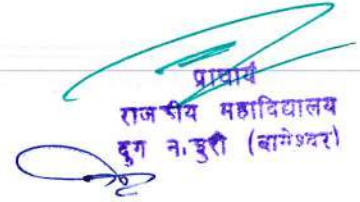 प्राचार्य
राजकीय महाविद्यालय
दुग नाकुरी (बागेश्वर)